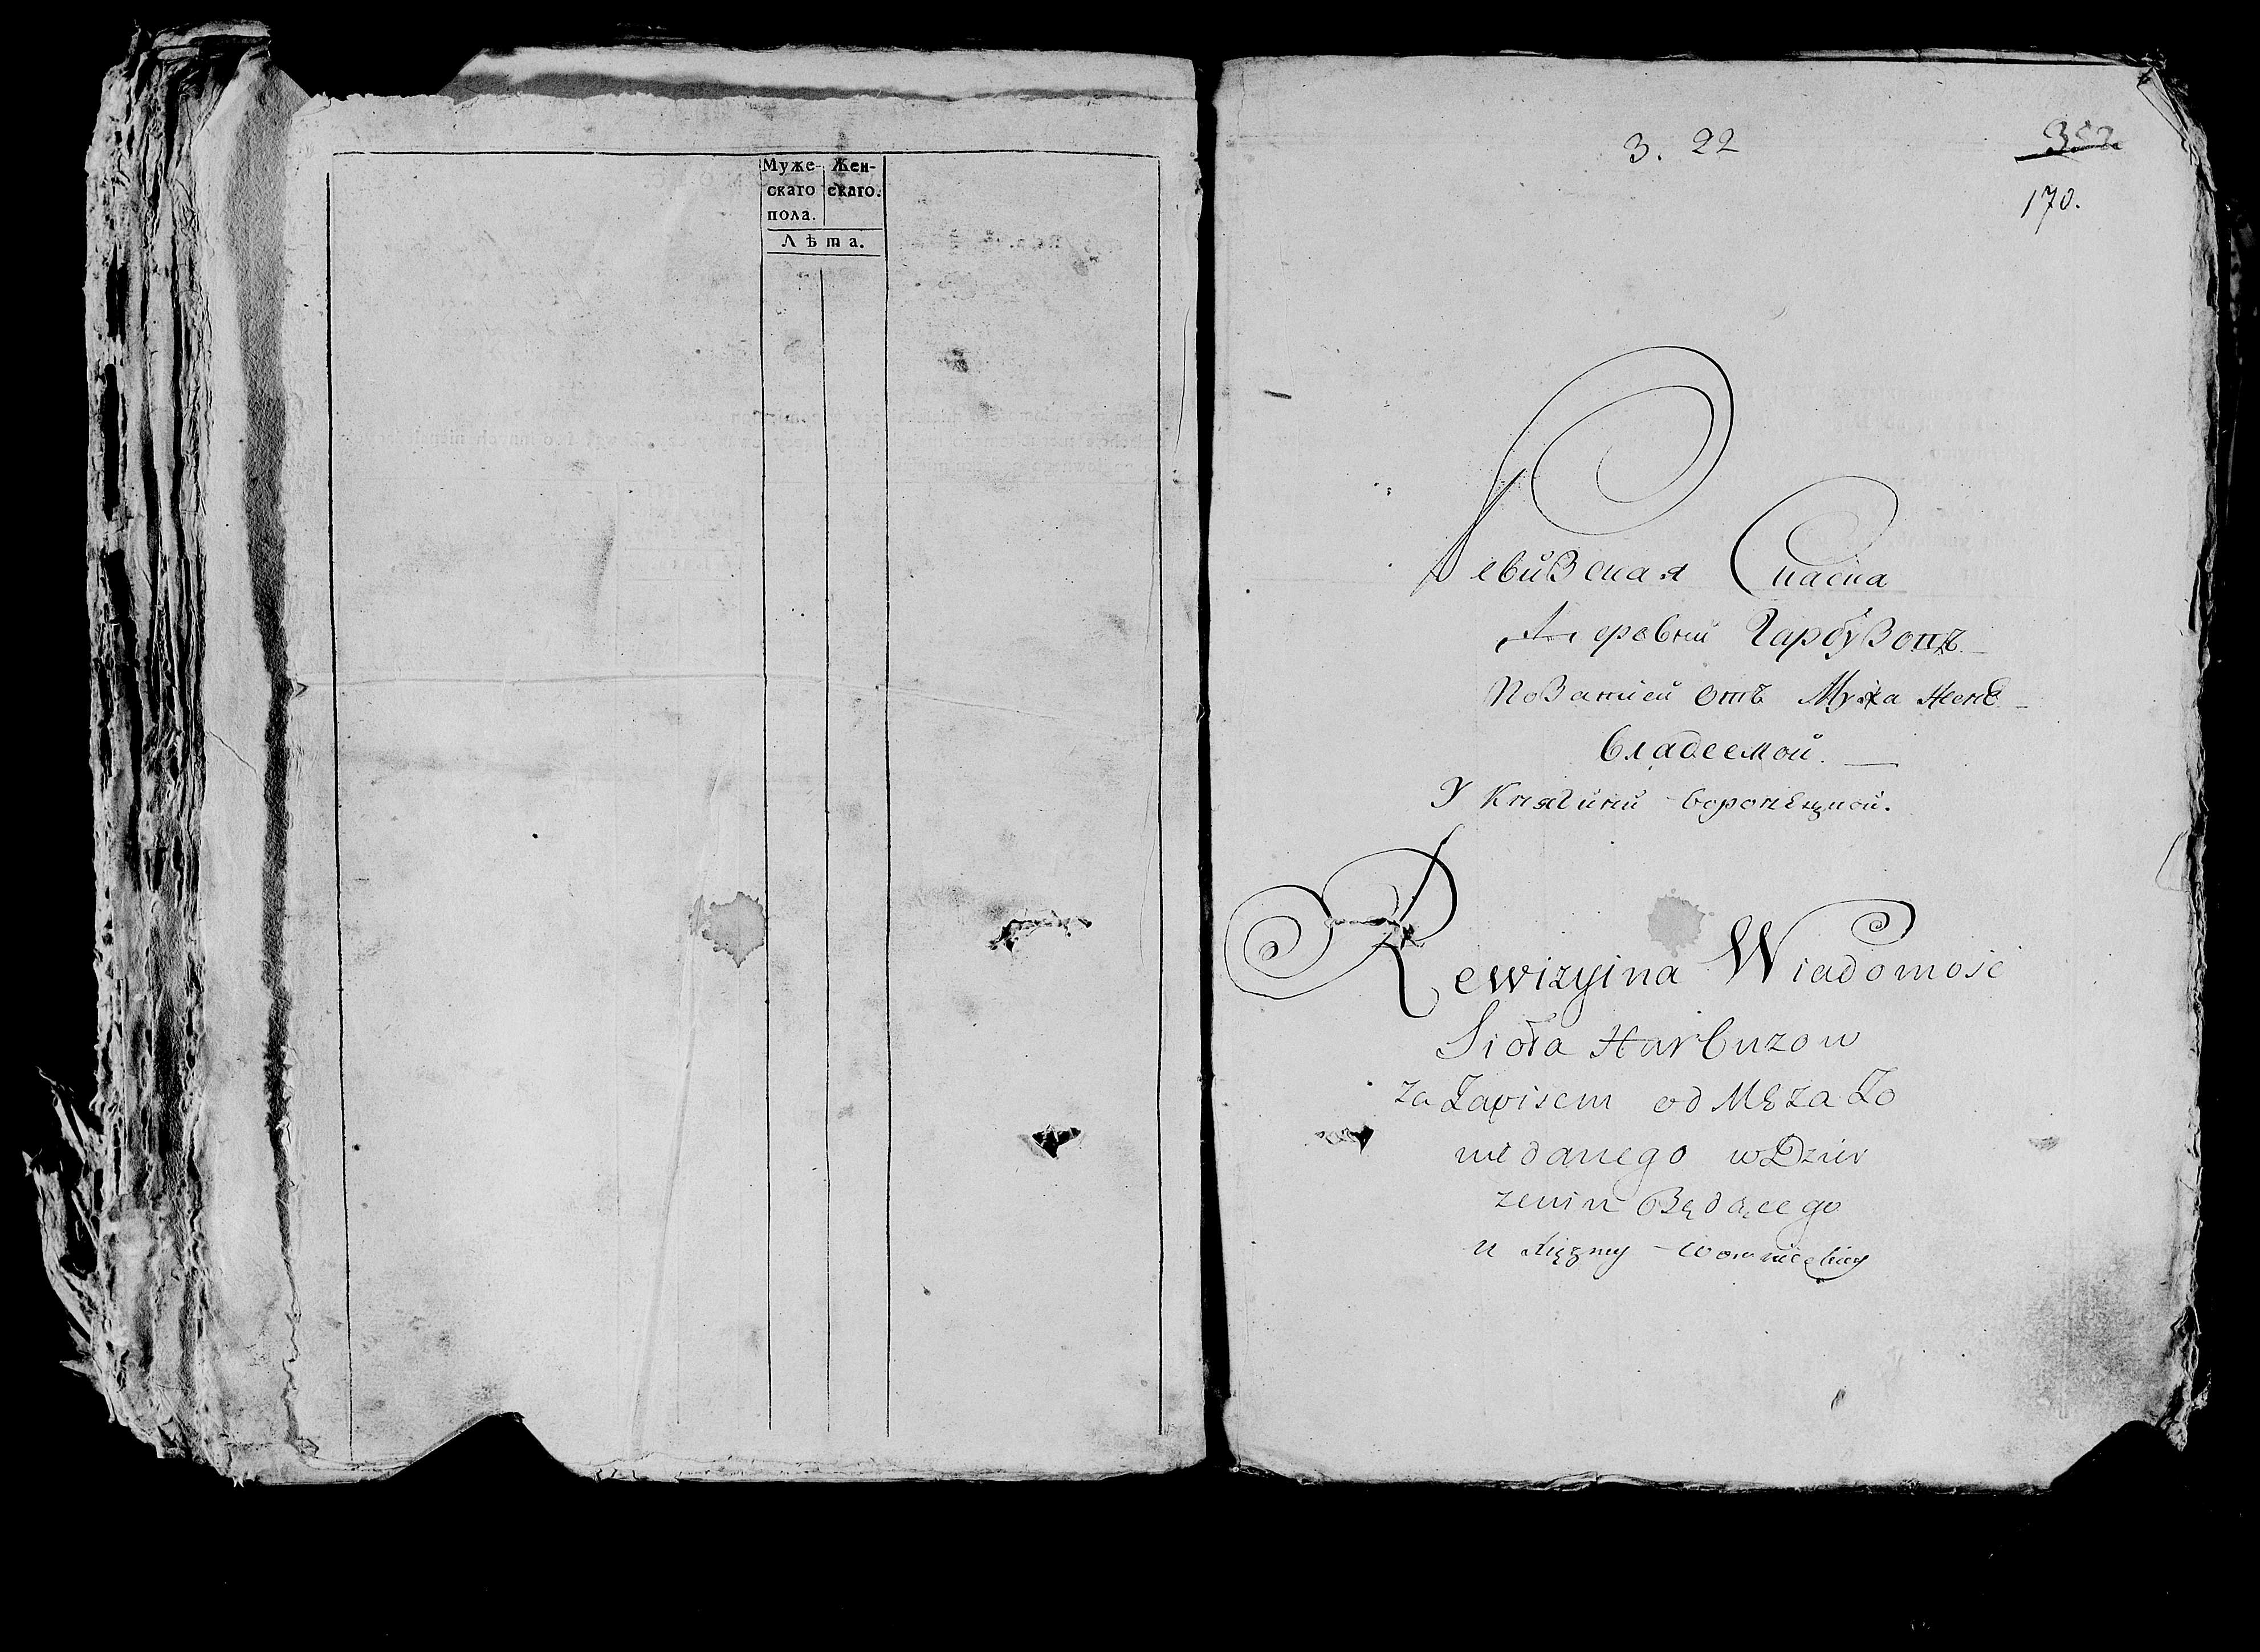 Муже- Жен-
скаго скаго.
пола.
Лѣта.
3. 22
352.
170.
Ревизская Сказка
Деревни Гарбузовъ
По Записи отъ Мужа Женѣ
владеемой.
У Княгини Воронѣцкой.
Rewizyina Wiadomość
Sioła Harbuzow
za Zapisem od Męża Żo
nie danego w Dzier
żeniu Będącego
u Xiężny Woronieckiey